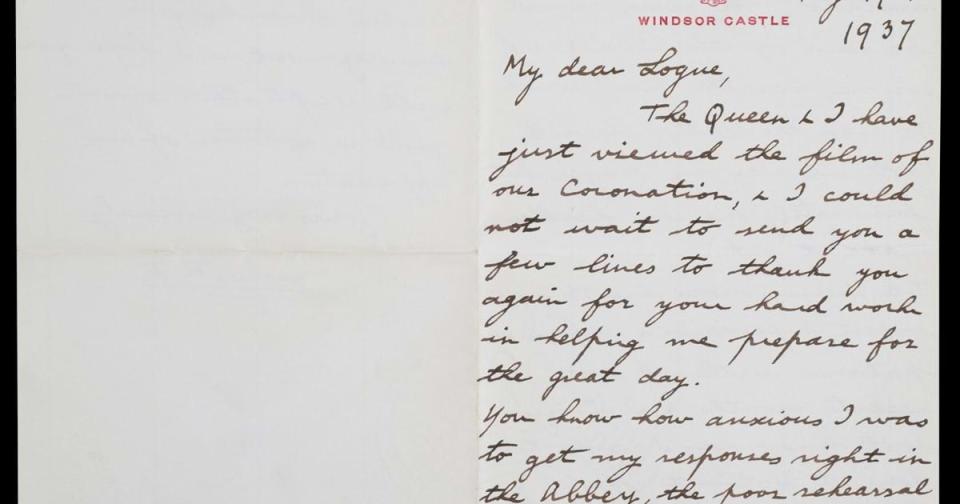 WINDSOR CASTLE
1937
My dear Logue,
The Queen & I have
just viewed the film of
our Coronation, & I could
not wait to send you a
few lines to thank you
again for your hard work
in helping me prepare for
the great day.
You know how anxious I was
to get my responses right in
the Abbey, the poor rehearsal